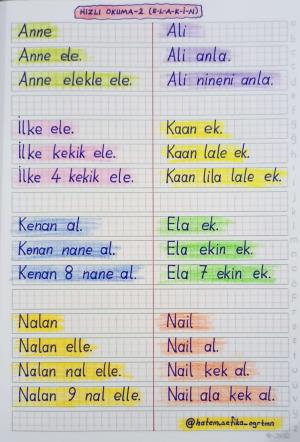 HIZLI OKUMA-2 (E-L-A-K-İ-N)
Anne
Anne ele.
Anne elekle ele.
Ali
Ali anla.
Ali nineni anla.
İlke ele.
İlke kekik ele.
İlke 4 kekik ele.
Kaan ek.
Kaan lale ek.
Kaan lila lale ek.
Kenan al.
Kenan nane al.
Kenan 8 nane al.
Ela ek.
Ela ekin ek.
Ela 7 ekin ek.
Nalan
Nalan elle.
Nalan nal elle.
Nalan 9 nal elle.
Nail
Nail al.
Nail kek al.
Nail ala kek al.
@hatem_sefika_ogrtmn